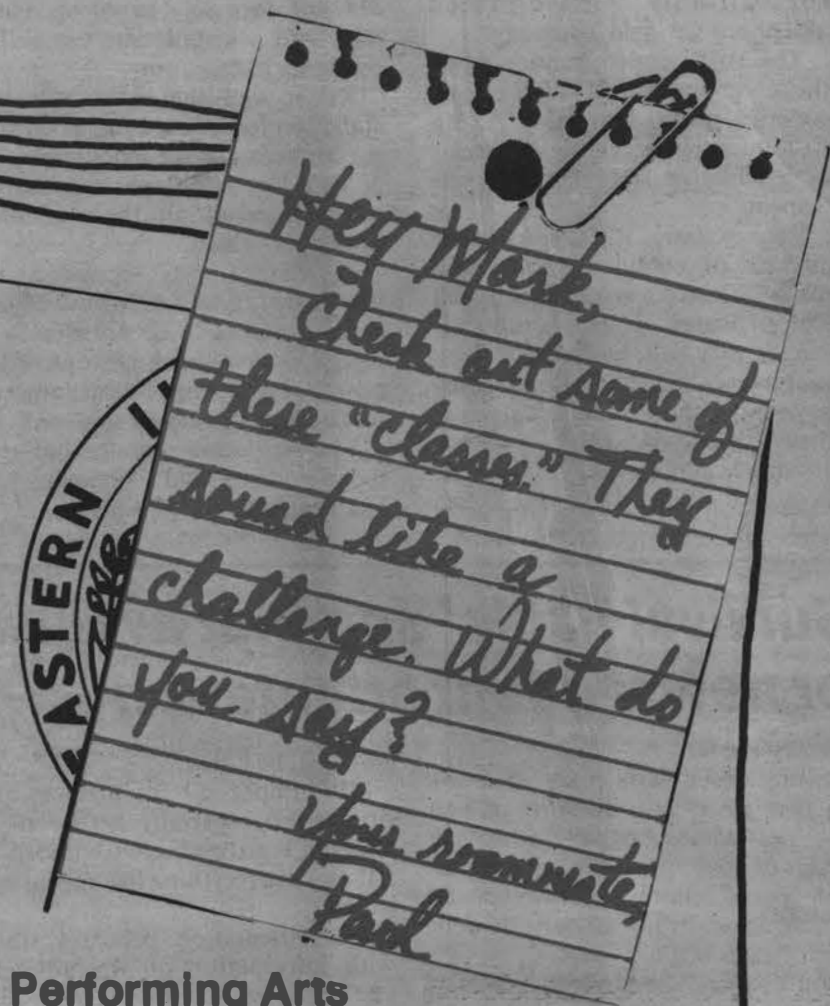 Hey Mark,
Check out some of
these "classes." They
sound like a
challange. What do
you say?
Your roommate,
Paul
ASTERN
Performing Arts